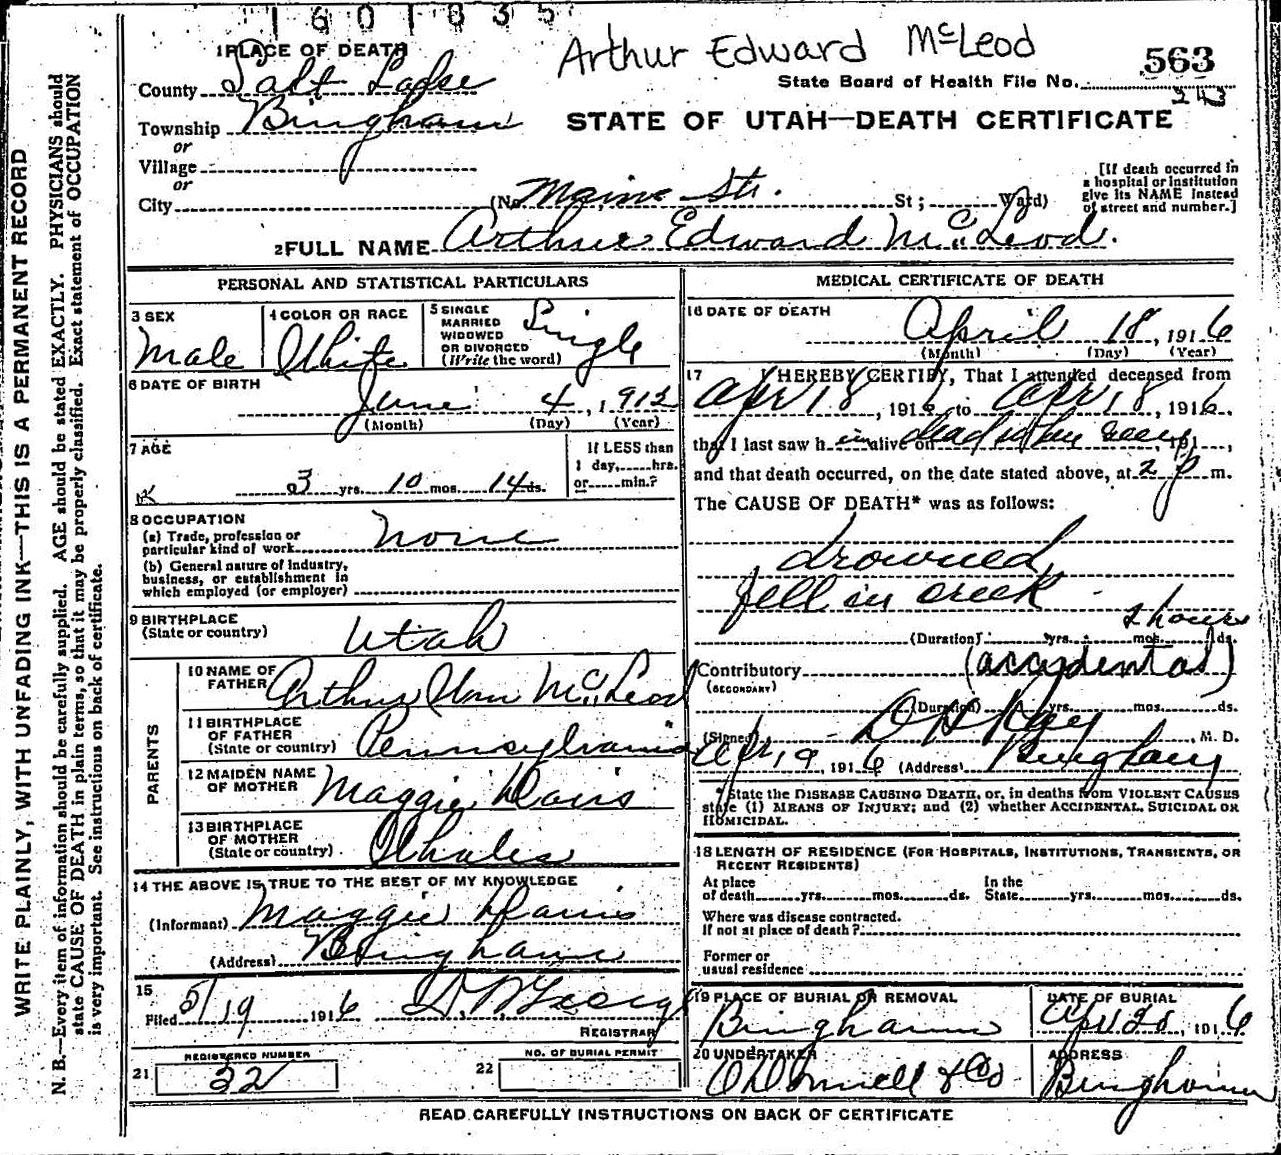 1601835
Arthur Edward McLeod
1 PLACE OF DEATH
County Salt Lake
State Board of Health File No. 563
243
Township Bingham
STATE OF UTAH—DEATH CERTIFICATE
or
Village
or
City (No Maine Str. St; Ward)
[If death occurred in
a hospital or institution
give its NAME instead
of street and number.]
2 FULL NAME Arthur Edward McLeod.
PERSONAL AND STATISTICAL PARTICULARS
3 SEX
Male
4 COLOR OR RACE
White
5 SINGLE
MARRIED
WIDOWED
OR DIVORCED
(Write the word)
Single
6 DATE OF BIRTH
June 4, 1912
(Month) (Day) (Year)
7 AGE
3 yrs. 10 mos. 14 ds.
If LESS than
1 day, hrs.
or min.?
8 OCCUPATION
(a) Trade, profession or
particular kind of work none
(b) General nature of industry,
business, or establishment in
which employed (or employer)
9 BIRTHPLACE
(State or country) Utah
PARENTS
10 NAME OF
FATHER Arthur Wm McLeod
11 BIRTHPLACE
OF FATHER
(State or country) Pennsylvania
12 MAIDEN NAME
OF MOTHER Maggie Davis
13 BIRTHPLACE
OF MOTHER
(State or country) Whales
14 THE ABOVE IS TRUE TO THE BEST OF MY KNOWLEDGE
(Informant) Maggie Davis
(Address) Bingham
15
Filed 5/19 1916
REGISTRAR
REGISTERED NUMBER
21 32
NO. OF BURIAL PERMIT
22
MEDICAL CERTIFICATE OF DEATH
16 DATE OF DEATH
April 18, 1916
(Month) (Day) (Year)
17 I HEREBY CERTIFY, That I attended deceased from
Apr 18, 1916 to Apr 18, 1916.
that I last saw h im alive on dead when seen, 191
and that death occurred, on the date stated above, at 2 p m.
The CAUSE OF DEATH* was as follows:
drowned,
fell in creek
2 hours
(Duration) yrs. mos. ds.
Contributory (accydental)
(SECONDARY)
(Duration) yrs. mos. ds.
(Signed) Ray M. D.
Apr 19, 1916 (Address) Bingham
*State the DISEASE CAUSING DEATH, or, in deaths from VIOLENT CAUSES
state (1) MEANS OF INJURY; and (2) whether ACCIDENTAL, SUICIDAL OR
HOMICIDAL.
18 LENGTH OF RESIDENCE (FOR HOSPITALS, INSTITUTIONS, TRANSIENTS, OR
RECENT RESIDENTS)
At place
of death yrs. mos. ds.
In the
State yrs. mos. ds.
Where was disease contracted.
If not at place of death?
Former or
usual residence
19 PLACE OF BURIAL OR REMOVAL
Bingham
DATE OF BURIAL
Apr 20, 1916
20 UNDERTAKER
O'Donnell & Co
ADDRESS
Bingham
READ CAREFULLY INSTRUCTIONS ON BACK OF CERTIFICATE
WRITE PLAINLY, WITH UNFADING INK—THIS IS A PERMANENT RECORD
N. B.—Every item of information should be carefully supplied. AGE should be stated EXACTLY. PHYSICIANS should
state CAUSE OF DEATH in plain terms, so that it may be properly classified. Exact statement of OCCUPATION
is very important. See instructions on back of certificate.